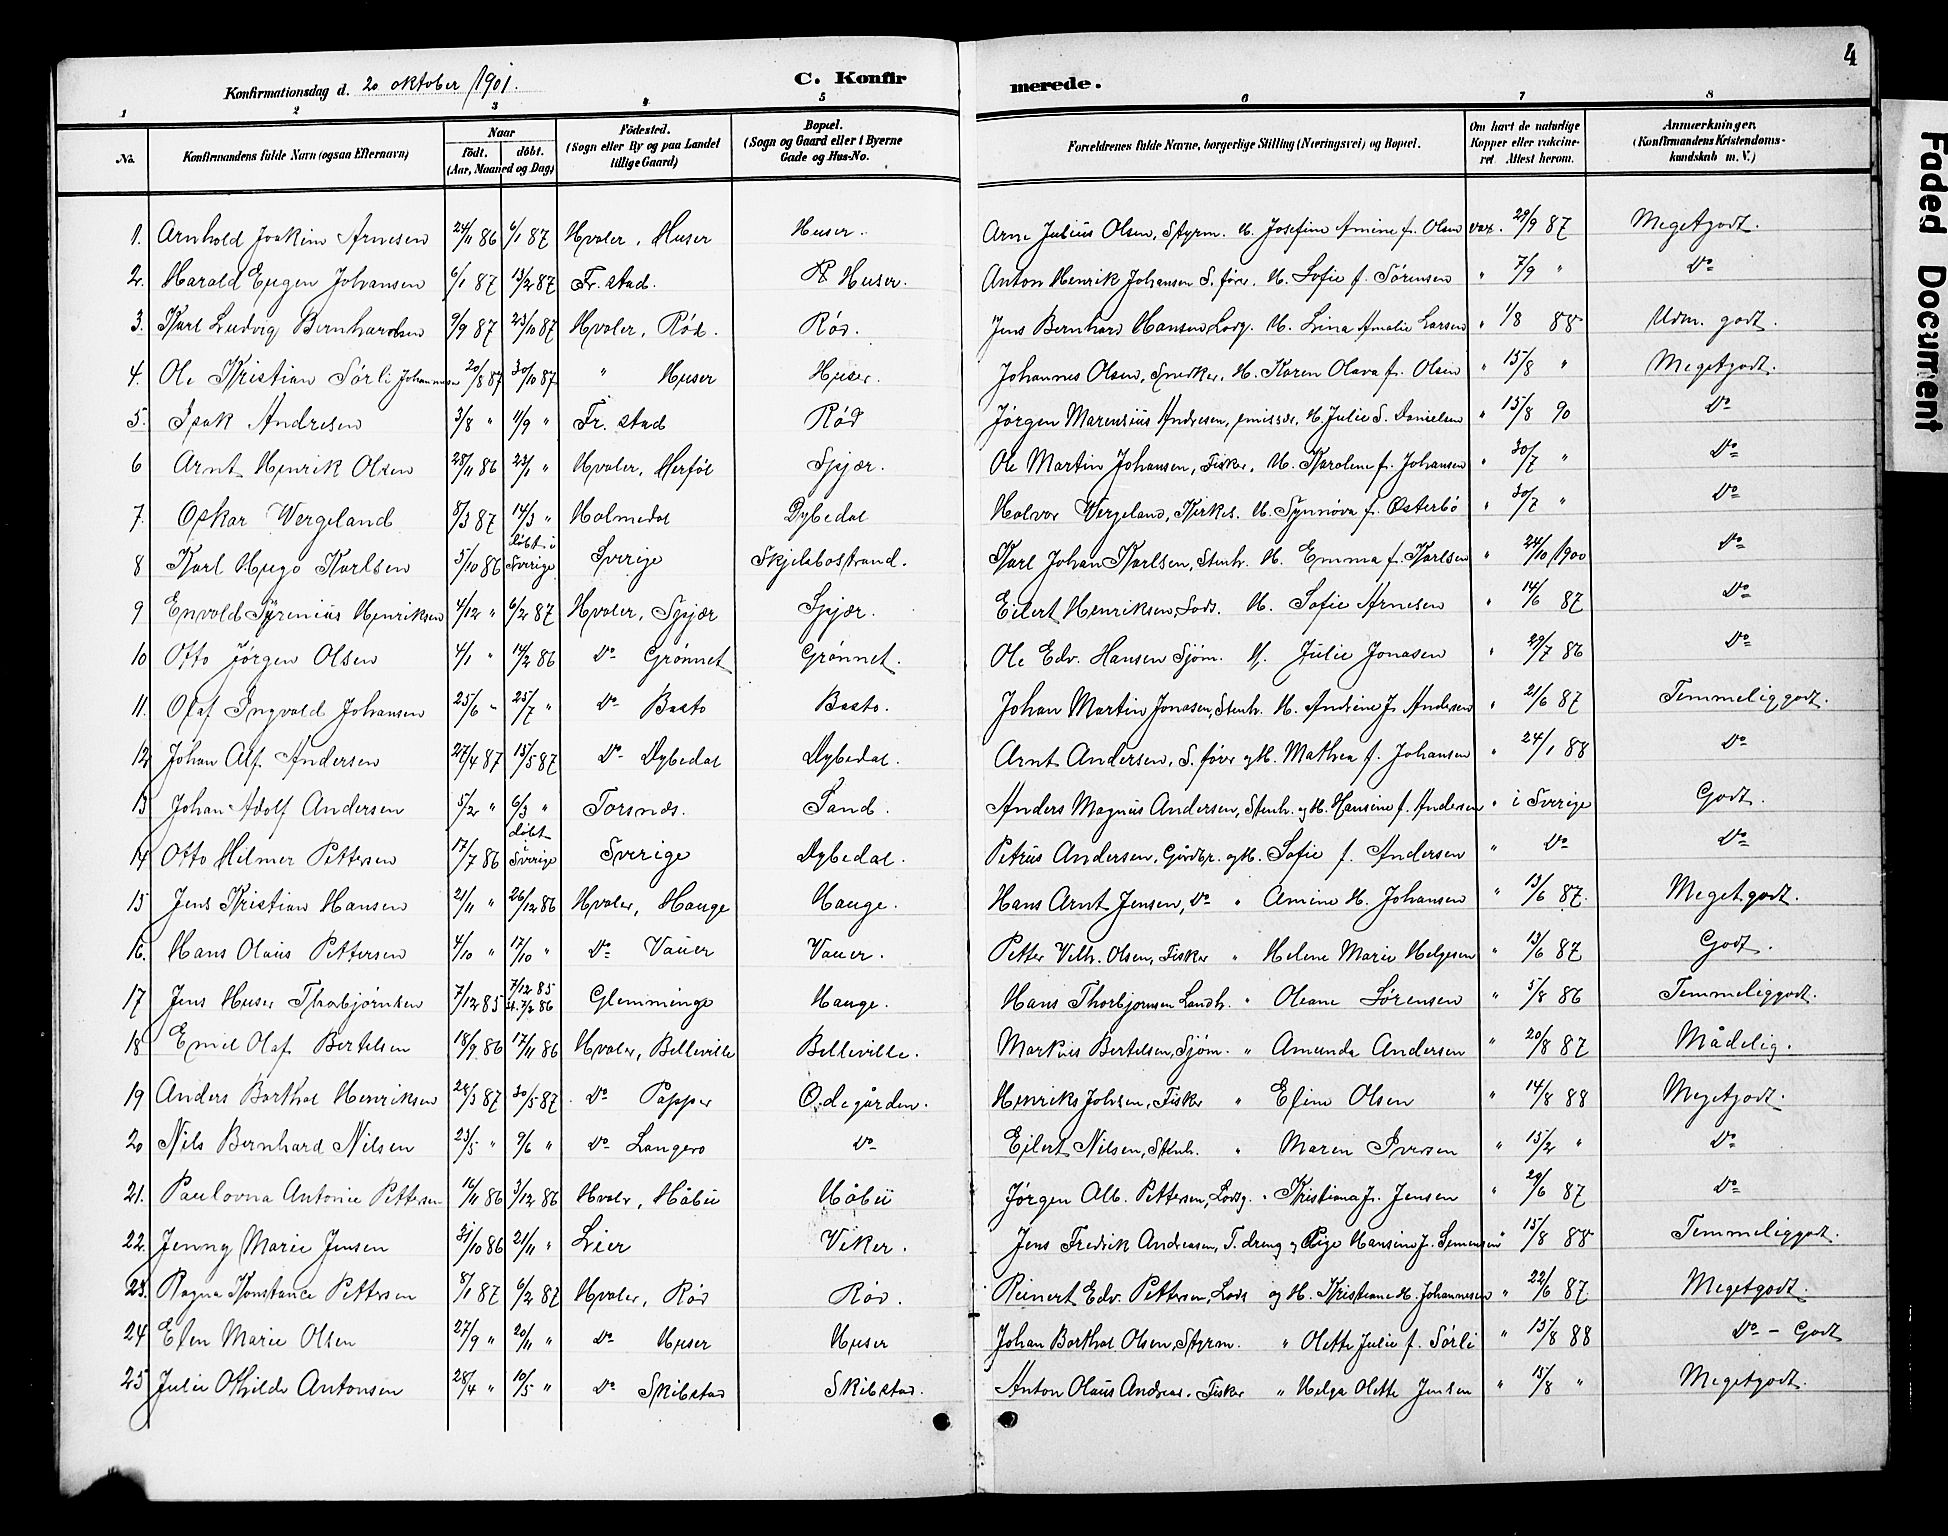 4
Konfirmationsdag d. 20 oktober 1901. C. Konfirmerede.
1 2 3 4 5 6 7 8
No. Konfirmandens fulde Navn (ogsaa Efternavn) Naar født. døbt. (Aar, Maaned og Dag) Fødested. (Sogn eller By og paa Landet tillige Gaard) Bopæl. (Sogn og Gaard eller i Byerne Gade og Hus-No. Forældrenes fulde Navne, borgerlige Stilling (Næringsvei) og Bopæl. Om havt de naturlige Kopper eller vakcineret. Attest herom. Anmærkninger. (Konfirmandens Kristendomskundskab m. V.)
1. Arnhold Joakim Arnesen 24/11 86 6/1 87 Hvaler, Huser Huser. Arne Julius Olsen, Styrm. H. Josefine Amine f. Olsen vax. 29/9 87 Megetgodt.
2. Harald Eugen Johansen 6/1 87 13/2 87 Fr. stad. Huser. Anton Henrik Johansen S. fører. H. Sofie f. Sørensen " 7/9 " Do
3. Karl Ludvig Bernhardsen 9/9 87 23/10 87 Hvaler, Rød. Rød. Jens Bernhard Hansen, Lods. H. Lina Amalie Larsen " 1/8 88 Udm. godt.
4. Ole Kristian Sørli Johannesen 20/8 87 30/10 87 " Huser Huser. Johannes Olsen, Snedker, H. Karen Olava f. Olsen " 15/8 " Megetgodt.
5. Isak Andresen 3/8 " 11/9 " Fr. stad Rød Jørgen Marensius Andresen, emissær, H. Julie S. Danielsen " 15/8 90 Do
6 Arnt Henrik Olsen 28/11 86 23/1 " Hvaler, Herføl Spjær. Ole Martin Johansen, Fisker, H. Karolene f. Johansen " 30/7 " Do
7. Oskar Wergeland 8/3 87 14/3 " Holmedal Dybedal Halvor Wergeland, Kirkes. H. Synnøva f. Østerbø " 30/7 " Do
8 Karl Hugo Karlsen 5/10 86 døbt i Sverige Sverige Skjelsbostrand. Karl Johan Karlsen, Stenh. H. Emma f. Karlsen " 24/10 1900 Do
9 Envald Syrenius Henriksen 4/12 " 6/2 87 Hvaler, Spjær Spjær. Eilert Henriksen, Lods. H. Sofie Arnesen " 14/6 87 Do
10 Otto Jørgen Olsen 4/1 " 14/2 86 Do Grønnet Grønnet. Ole Edv. Hansen Sjøm. H. Julie Jonasen " 29/7 86 Do
11. Olaf Ingvald Johansen 25/6 " 25/7 " Do Basto Basto. Johan Martin Jonasen, Stenh. H. Andrine J. Andersen " 21/6 87 Temmeliggodt.
12 Johan Alf. Andersen 27/4 87 15/5 87 Do Dybedal Dybedal. Arnt Andersen, S. fører og H. Mathea f. Johansen " 24/1 88 Do
13 Johan Adolf Andersen 5/2 " 6/3 " Torsnæs. Sand. Anders Magnus Andersen, Stenh. og H. Hansine f. Andersen " i Sverige Godt.
14 Otto Helmer Pettersen 17/7 86 døbt i Sverige Sverige Dybedal. Petrus Andersen, Gårdbr. og H. Sofie f. Andersen " Do Do
15 Jens Kristian Hansen 21/11 " 26/12 86 Hvaler, Hauge Hauge. Hans Arnt Jensen, Do " Amine H. Johansen " 13/6 87. Megetgodt.
16. Hans Olaus Pettersen 4/10 " 17/10 " Do Vauer Vauer. Petter Vilh. Olsen, Fisker " Helene Marie Helgesen " 13/6 87 Godt.
17 Jens Huser Thorbjørnsen 7/12 85 7/12 85 st. 7/2 86 Glemminge Hauge. Hans Thorbjørnsen Landh. " Oleane Sørensen " 5/8 86 Temmeliggodt.
18 Emil Olaf Bertelsen 18/9 86 17/11 86 Hvaler, Belleville Belleville. Markus Bertelsen, Sjøm. " Amanda Andersen " 20/8 87 Mådelig.
19 Anders Barthol Henriksen 28/3 87 30/5 87 Do Papper Ødegården. Henriks Johsen, Fisker " Eline Olsen " 14/8 88 Megetgodt.
20 Nils Bernhard Nilsen 23/5 " 9/6 " Do Langero Do Eilert Nilsen, Stenh. " Maren Iversen " 15/2 " Do
21. Paulovna Antonie Pettersen 16/11 86 3/12 86 Hvaler, Håbu Håbu Jørgen Alb. Pettersen, Lods. " Kristiana Jr. Jensen " 20/6 87 Do
22. Jenny Marie Jensen 31/10 86 21/11 " Lier Viker. Jens Fredrik Andreasen, T. dreng og Pige Hansine J. Simensen " 15/8 88 Temmeliggodt.
23. Ragna Konstance Pettersen 8/1 87 6/2 87 Hvaler, Rød Rød. Reinert Edv. Pettersen, Lods og H. Kristiane H. Johannesen " 22/6 87. Megetgodt.
24 Elen Marie Olsen 27/9 " 20/11 " Do Huser Huser Johan Barthol Olsen, Styrm. " Olette Julie f. Sørli " 15/8 88 Do - Godt
25 Julie Othilde Antonsen 28/4 " 10/5 " Do Skibstad Skibstad. Anton Olaus Andreas. Fisker " Helga Olette Jensen " 15/8 " Megetgodt.
Faded Document